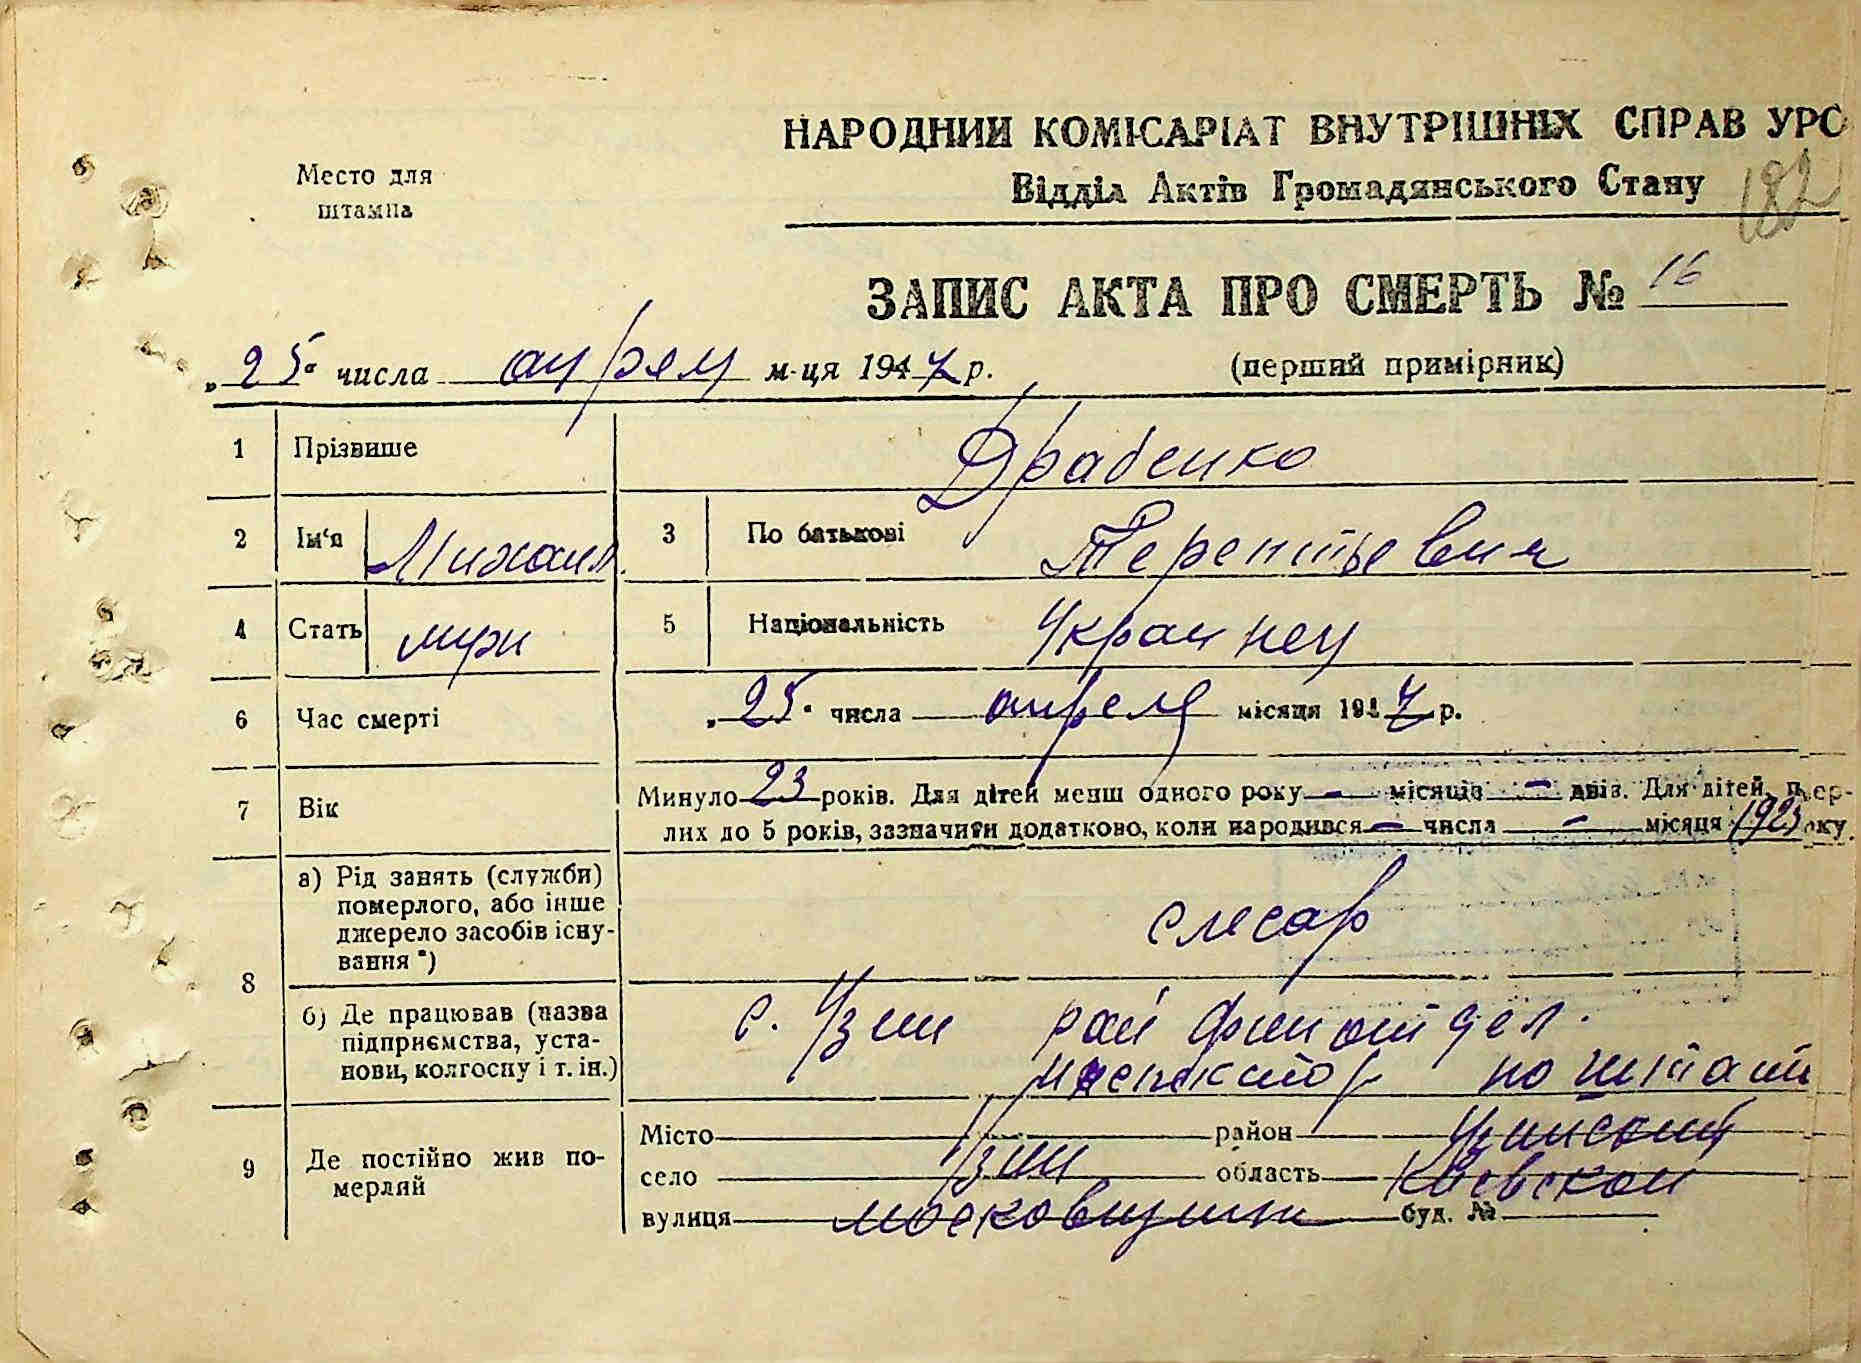 НАРОДНИЙ КОМІСАРІАТ ВНУТРІШНІХ СПРАВ УРС
Відділ Актів Громадянського Стану
182
Место для
штампа
ЗАПИС АКТА ПРО СМЕРТЬ № 16
„25" числа апреля м-ця 1947 р. (перший примірник)
1 Прізвише Драбенко
2 Ім'я Михаил 3 По батькові Терентьевич
4 Стать муж 5 Національність Украинец
6 Час смерті „25" числа апреля місяця 1947 р.
7 Вік Минуло 23 років. Для дітей менш одного року — місяців — днів. Для дітей, помер-
лих до 5 років, зазначити додатково, коли народився — числа — місяця 1923 року.
8 а) Рід занять (служби)
померлого, або інше
джерело засобів існу-
вання *) слесар
б) Де працював (назва
підприємства, уста-
нови, колгоспу і т. ін.) с. Узин рай финотдел.
инспектор по штат
9 Де постійно жив по-
мерлий
Місто район Узинский
село Узин область Киевской
вулиця московщини буд. №